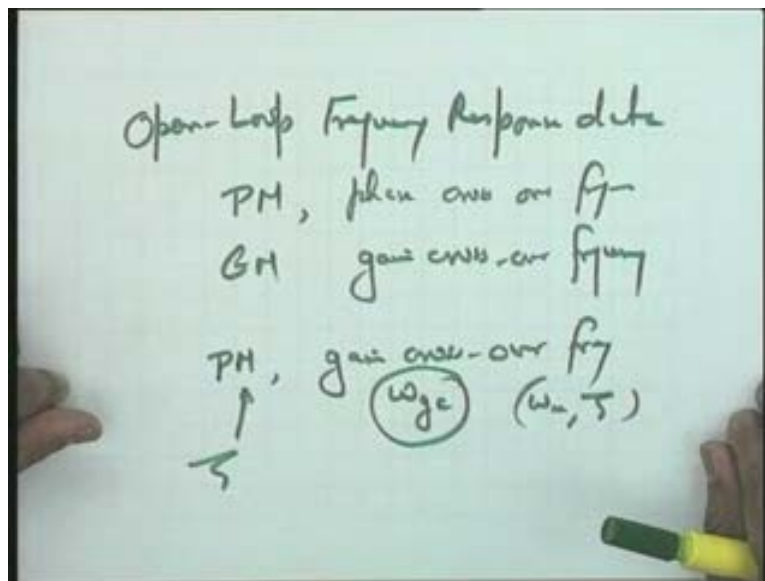 Open-Loop Frequency Response data
PM, phase cross over fqn
GM gain cross-over frequency
PM, gain cross-over frq
ωgc (ωn, ζ)
ζ